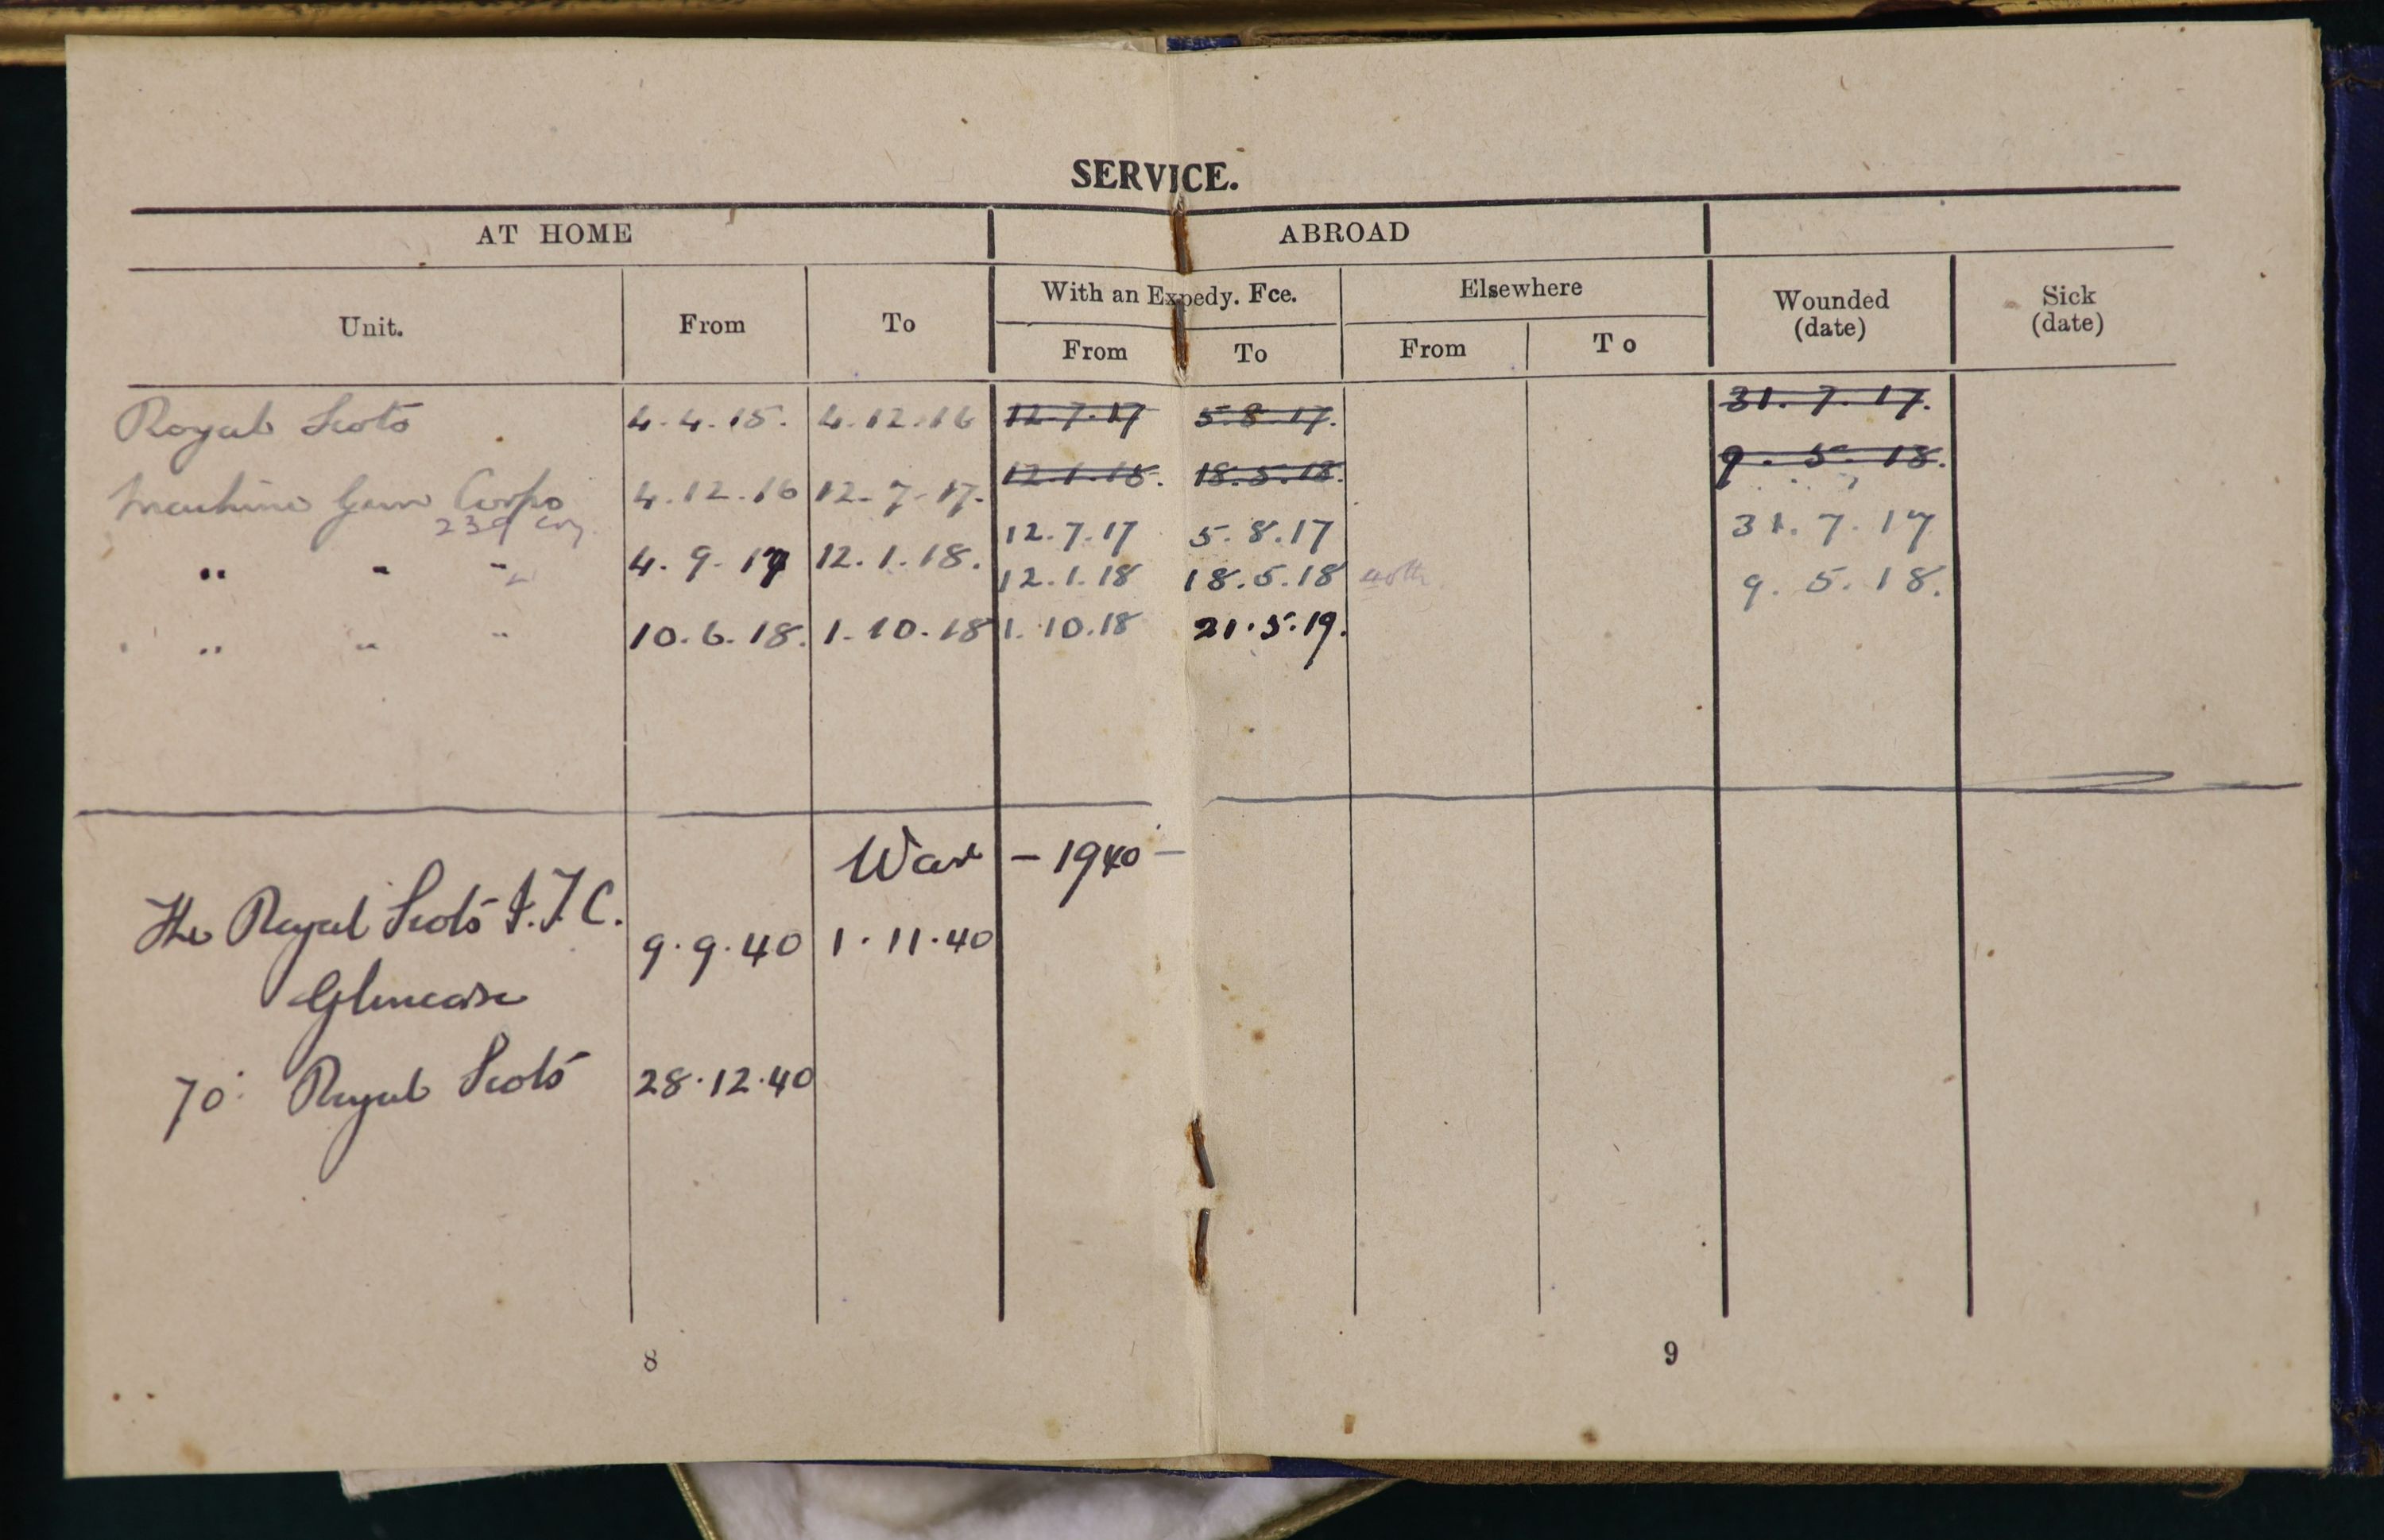 SERVICE.
AT HOME ABROAD
Unit. From To With an Expedy. Fce. Elsewhere Wounded (date) Sick (date)
From To From To
Royal Scots 4.4.15. 4.12.16 12.7.17 5.8.17. 31.7.17.
12.1.18. 18.5.18. 9.5.18.
Machine Gun Corps 4.12.16 12.7.17.
239 Coy.
12.7.17 5.8.17 31.7.17
" " " 4.9.17 12.1.18. 12.1.18 18.5.18 40th 9.5.18.
" " " 10.6.18. 1.10.18 1.10.18 21.5.19.
War - 1940 -
The Royal Scots I.T.C. 9.9.40 1.11.40
Glencorse
70: Royal Scots 28.12.40
8 9